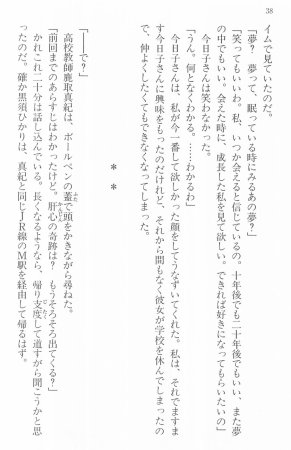 38
イムで見ていたのだ。
「夢？　夢って、眠っている時にみるあの夢？」
「笑ってもいいわ。私、いつか会えると信じているの。十年後でも二十年後でもいい、また夢
の中でもいい。会えた時に、成長した私を見て欲しい。できれば好きになってもらいたいの」
今日子さんは笑わなかった。
「うん。何となくわかる。……わかるわ」
今日子さんは、私が今一番して欲しかった顔をしてうなずいてくれた。私は、それでますま
す今日子さんに興味をもったのだけれど、それから間もなく彼女が学校を休んでしまったの
で、仲よくしたくてもできなくなってしまった。
＊　＊
「――で？」
高校教師鹿取真紀は、ボールペンの蓋で頭をかきながら尋ねた。
「前回までのあらすじはわかったけど。肝心の奇跡は？　もうそろそろ出てくる？」
かれこれ二十分は話し込んでいる。長くなるようなら、帰り支度して道すがら聞こうかと思
ったのだ。確か黒須ひかりは、真紀と同じＪＲ線のＭ駅を経由して帰るはず。